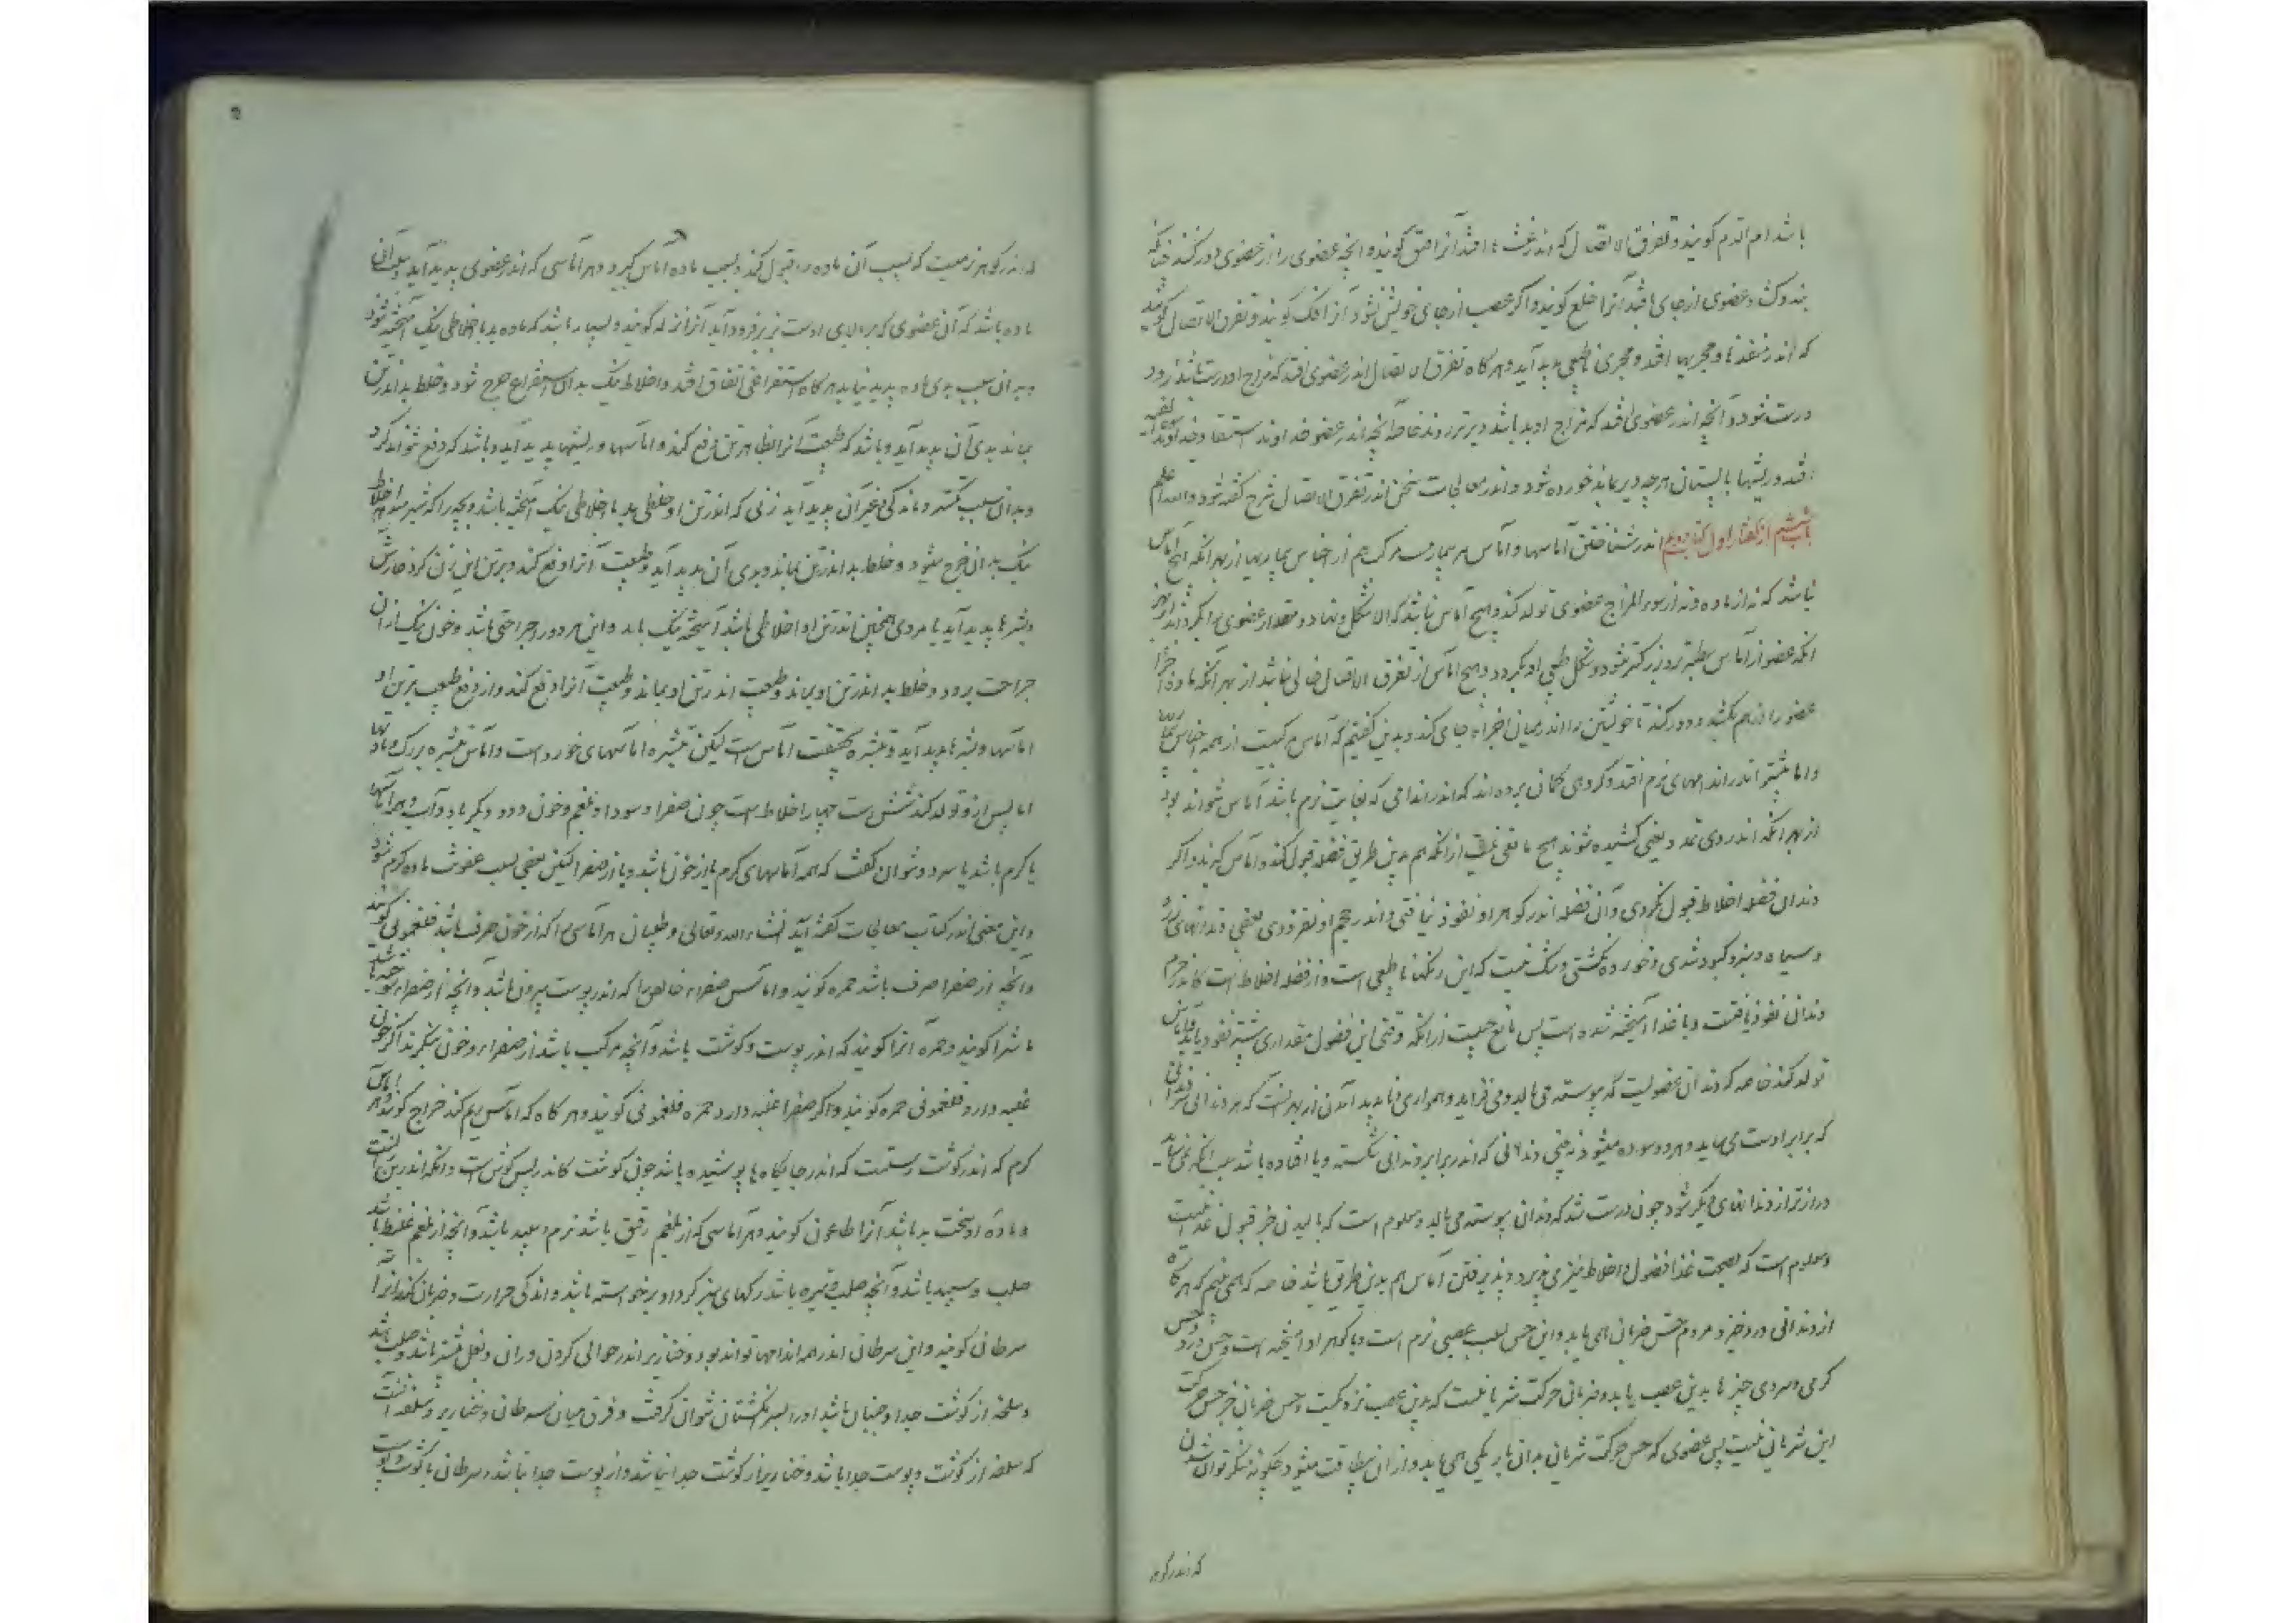 باشد ام الدم کویند و تفرق الاتصال که اندر غشاء افتد آنرا فتق کویند و انچه عضوی را از عضوی دور کند چنانکه
بند وکشاد عضوی از جای افتد آنرا خلع کویند واکر عصب از جای خویش شود آنرا فک کویند و تفرق الاتصال
که اندر منفذها و مجریها افتد و مجری ناطبیعی پدید آید وهرکاه تفرق الاتصال اندر عضوی افتد که مزاج او درست باشد زود
درست شود و آنچه اندر عضوی افتد که مزاج او بد باشد دیرتر روند خاصه آنچه اندر عضو خداوند استسقا و خداوند
افتد و ریشها بابستان هرچه دیر بماند خورده شود و اندر معالجات سخن اندر تفرق الاتصال شرح کفته شود والله اعلم
باب ششم از کفتار اول کتاب دویم اندر شناختن آماسها و آماس هم بیماریست مرکب هم از اجناس بیماریها از بهر انکه هیچ اماس
نباشد که نه از ماده و نه از سوء المزاج عضوی تولد کند و هیچ آماس نباشد که الا شکل و نهاد و مقدار عضوی بدان بکردد از بهر
انکه عضو از آماس سطبرتر و بزرکتر شود و شکل طبیعی او بکردد و هیچ اماس از تفرق الاتصال خالی نباشد از بهر آنکه ماده اجزا
عضو را از هم بکشد و دور کند تا خویشتن را اندر میان اجزاء جای کند و بدین کفتیم که آماس مرکبست از همه اجناس
و اماس بیشتر اندر اندامهای نرم افتد و کروهی کمان برده اند که اندر اندامی که بغایت نرم باشد آماس نتواند بود
از بهر انکه اندر وی تمدد یعنی کشیده شوند هیچ مانعی نیست از انکه هم بدین طریق فضله قبول کند و آماس کیرند و اکر
دندان فضله اخلاط قبول نکردی و آن فضله اندر کوهر او نفوذ نیافتی و اندر حجم او نفزودی بعضی دندانها
و سیاه و سبز و کبود نشدی و خورده نکشتی و شک نیست که این رنکها ناطبیعی است و از فضله اخلاط است که اندر جرم
دندان نفوذ یافتست و با غذا آمیخته شده است پس مانع چیست از انکه وقتی این فضول مقداری بیشتر نفوذ یابد و اماس
تولد کند خاصه که دندان عضویست که پوسته می بالد و می فزاید و همواری پدید آمدن از بهر انست که هر دندانی
که برابر اوست می ساید و هر دو سوده میشود نه بینی دندانی که اندر برابر دندانی شکسته و یا افتاده باشد بسبب انکه نمی ساید
دراز تر از دندانهای دیکر شود چون درست شد که دندان پوسته می بالد و معلوم است که بالیدن جز قبول غذا نیست
و معلوم است که بصحبت غذا فضول و اخلاط نیز می پذیرد و پذیرفتن آماس هم بدین طریق باشد خاصه که همی بینیم که هرکاه
از دندانی درد خیزد مردم حس ضربانی همی یابد و این حس بسبب عصبی نرم است و با کوهر او امیخته است و حس درد
کرمی و سردی چیزها بدین عصب یابد و ضربانی حرکت شریانست که بدین عصب نزدیکست و حس ضربانی جز حس حرکت
این شریانی نیست پس عضوی که حس حرکت شریانی بدان باریکی همی یابد و از ان بطاقت میشود چکونه منکر توان شدن
که اندر کوهر
که اندر کوهر نرمیست که بسبب آن ماده را قبول کند و بسبب ماده اماس کیرد و هر آماسی که اندر عضوی پدید آید بسبب آن
ماده باشد که آن عضوی که بر بالای اوست بزیر فرود آید آنرا نزله کویند و بسیار باشد که ماده بد با اخلاطی نیک آمیخته شود
و بدان سبب بدی ماده پدید نیاید هرکاه استفراغی اتفاق افتد و اخلاط نیک بدان استفراغ خرج شود و خلط بد اندر تن
بماند بدی آن پدید آید و باشد که طبیعت آنرا بظاهر تن دفع کند و اماسها و ریشها پدید آید و باشد که دفع نتواند کرد
و بدان سبب تکسر و ماندکی و غیر آن پدید آید زنی که اندر تن او خلطی بد با اخلاطی نیک آمیخته باشد و بچه را که شیر میدهد اخلاط
نیک بدان خرج میشود و خلط بد اندر تن بماند و بدی آن پدید آید و طبیعت آنرا دفع کند و بر تن این زن کر و خارش
و بثرها پدید آید یا مردی همچنین اندر تن او اخلاطی باشد آمیخته نیک با بد و این مرد را جراحتی باشد و خون نیک از ان
جراحت برود و خلط بد اندر تن او بماند و طبیعت آنرا دفع کند و از دفع طبیعت بر تن او
اماسها و بثرها پدید آید و بثره بحقیقت اماس است لیکن بثره اماسهای خورد است و آماس بثره بزرک و مادتها
اماس از و تولد کند شش است چهار اخلاط است چون صفرا و سودا و بلغم و خون و دو دیکر باد و آب و همه آماسها
یا کرم باشد یا سرد و نتوان کفت که همه آماسهای کرم یا از خون باشد و یا از صفرا لیکن بعضی بسبب عفونت ماده کرم شود
و این معنی اندر کتاب معالجات کفته آید انشاء الله تعالی و طبیبان هر آماسی را که از خون صرف باشد فلغمونی کویند
و آنچه از صفرا صرف باشد حمره کویند و اماس صفراء خالص را که اندر پوست بیرون باشد و آنچه از صفراء
ماشرا کویند و حمره آنرا کویند که اندر پوست و کوشت باشد و آنچه مرکب باشد از صفراء و خون بنکرند اکر خون
غلبه دارد فلغمونی حمره کویند و اکر صفرا غلبه دارد حمره فلغمونی کویند و هرکاه که اماس ریم کند خراج کویند و هر اماس
کرم که اندر کوشت رستست که اندر جایکاه ها پوشیده باشد چون کوشت که اندر پس کوش است و انکه اندر بن
و ماده او سخت بد باشد آنرا طاعون کویند و هر آماسی که از بلغم رقیق باشد نرم و سپید باشد و آنچه از بلغم غلیظ باشد
صلب و سپید باشد و آنچه صلب و تیره باشد و رکهای سبز کرد او برخواسته باشد و اندکی حرارت و ضربان کند آنرا
سرطان کویند و این سرطان اندر همه اندامها تواند بود و خنازیر اندر حوالی کردن و ران و بغل بیشتر باشد و صلب باشد
و سلعه از کوشت جدا و جنبان باشد او را بسر انکشتان بتوان کرفت و فرق میان سرطان و خنازیر و سلعه آنست
که سلعه از کوشت و پوست جدا باشد و خنازیر از کوشت جدا نباشد و از پوست جدا باشد و سرطان با کوشت و پوست